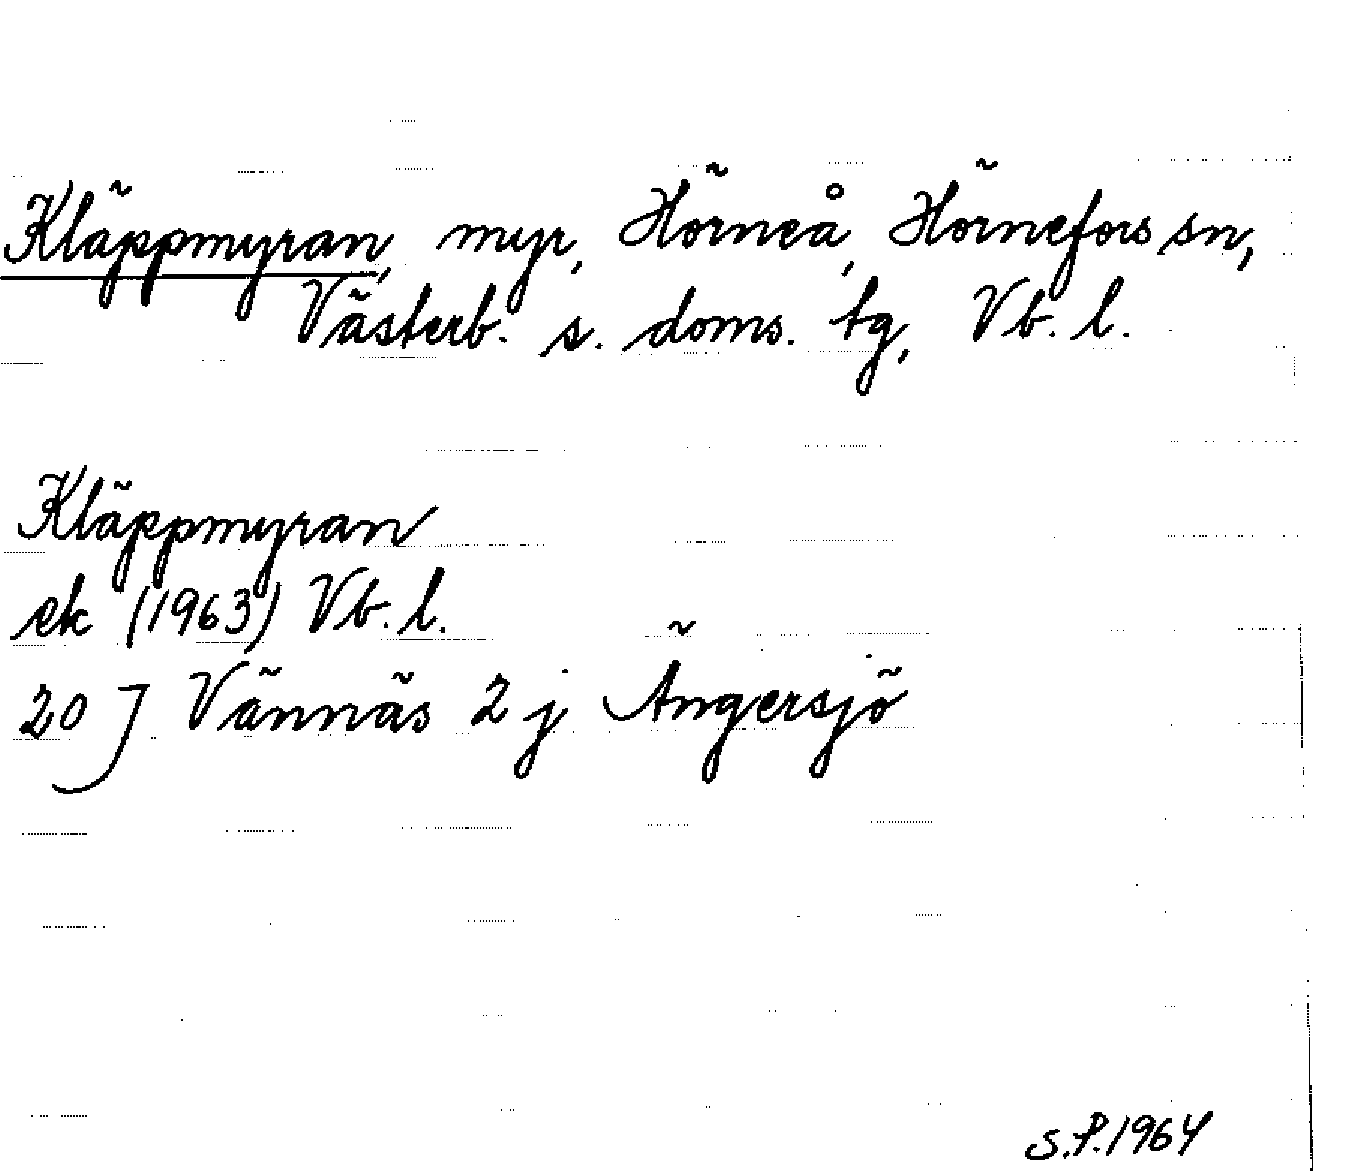 Kläppmyran, myr, Hörneå, Hörnefors sn,
Västerb. s. doms. tg, Vb. l.
Kläppmyran
ek (1963) Vb. l.
20 J Vännäs 2 j Ängersjö
S.P. 1964